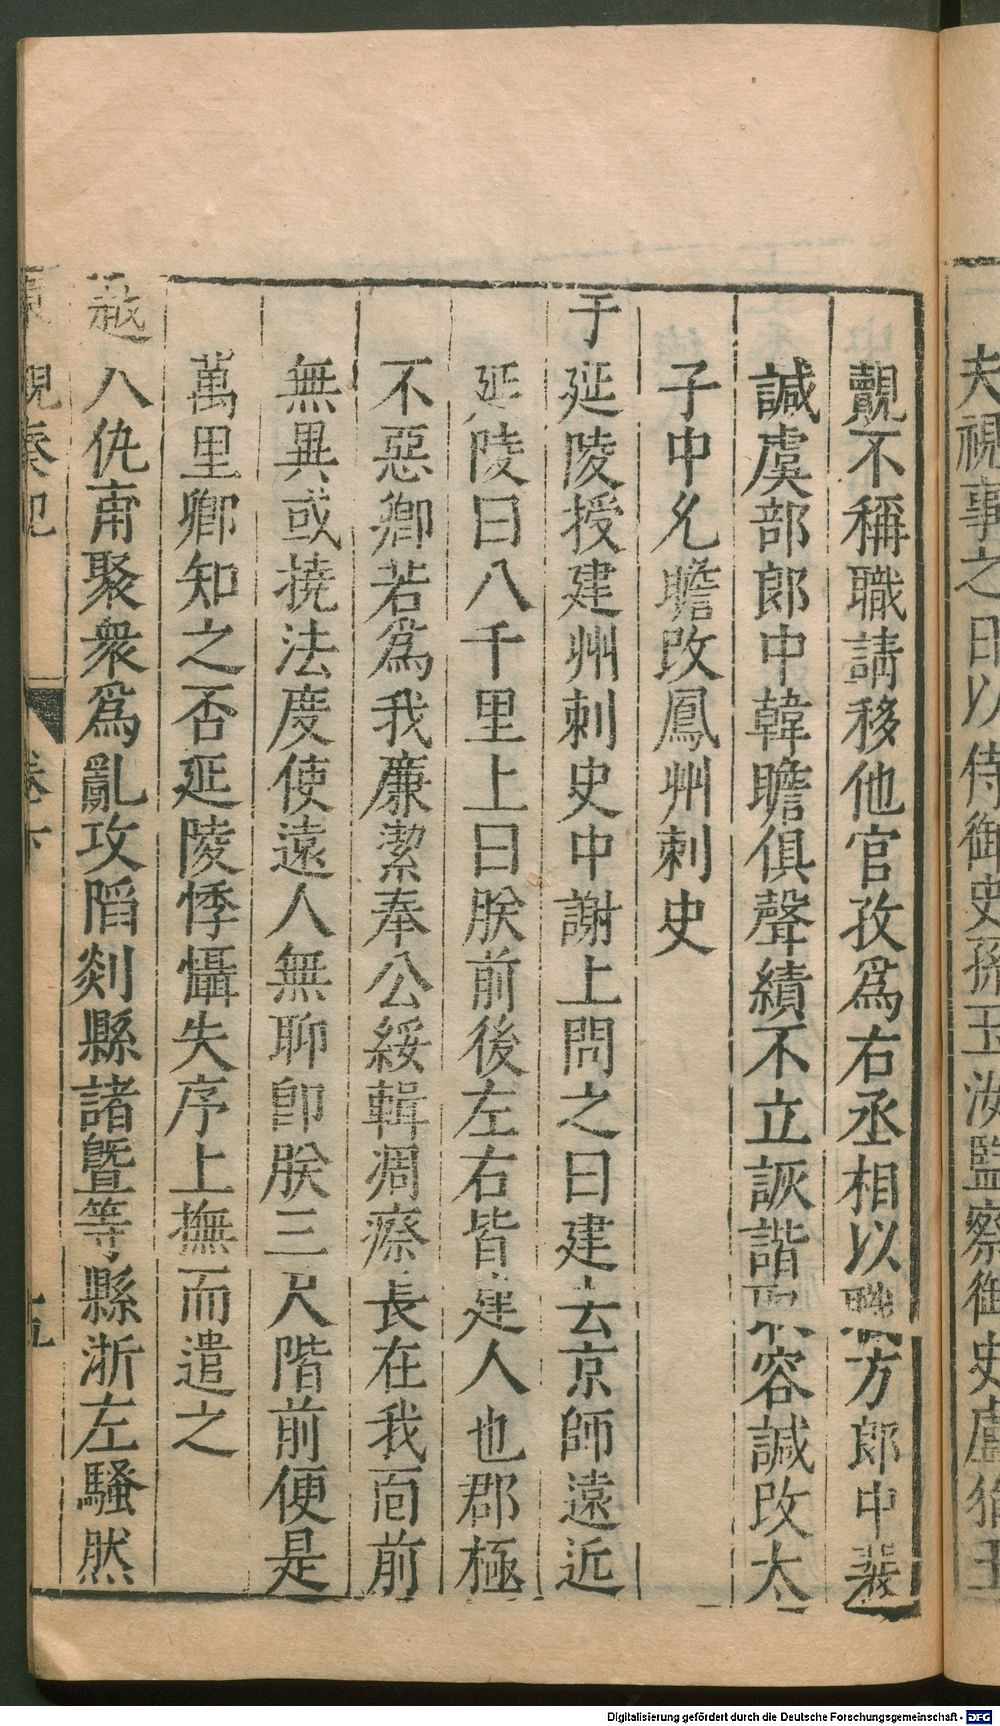 夫視事之日以侍御史孫玉汝監察御史盧狷王
覿不稱職請移他官孜爲右丞相以職方郎中裴
諴虞部郎中韓瞻俱聲績不立詼諧取容諴改太
子中允瞻改鳳州刺史
于延陵授建州刺史中謝上問之曰建去京師遠近
延陵曰八千里上曰朕前後左右皆建人也郡極
不惡卿若爲我廉潔奉公綏輯凋瘵長在我面前
無異或撓法度使遠人無聊卽朕三尺階前便是
萬里卿知之否延陵悸懾失序上撫而遣之
越人仇甫聚衆爲亂攻䧟剡縣諸曁等縣浙左騷然
東觀奏記 卷下 五
Digitalisierung gefördert durch die Deutsche Forschungsgemeinschaft - DFG